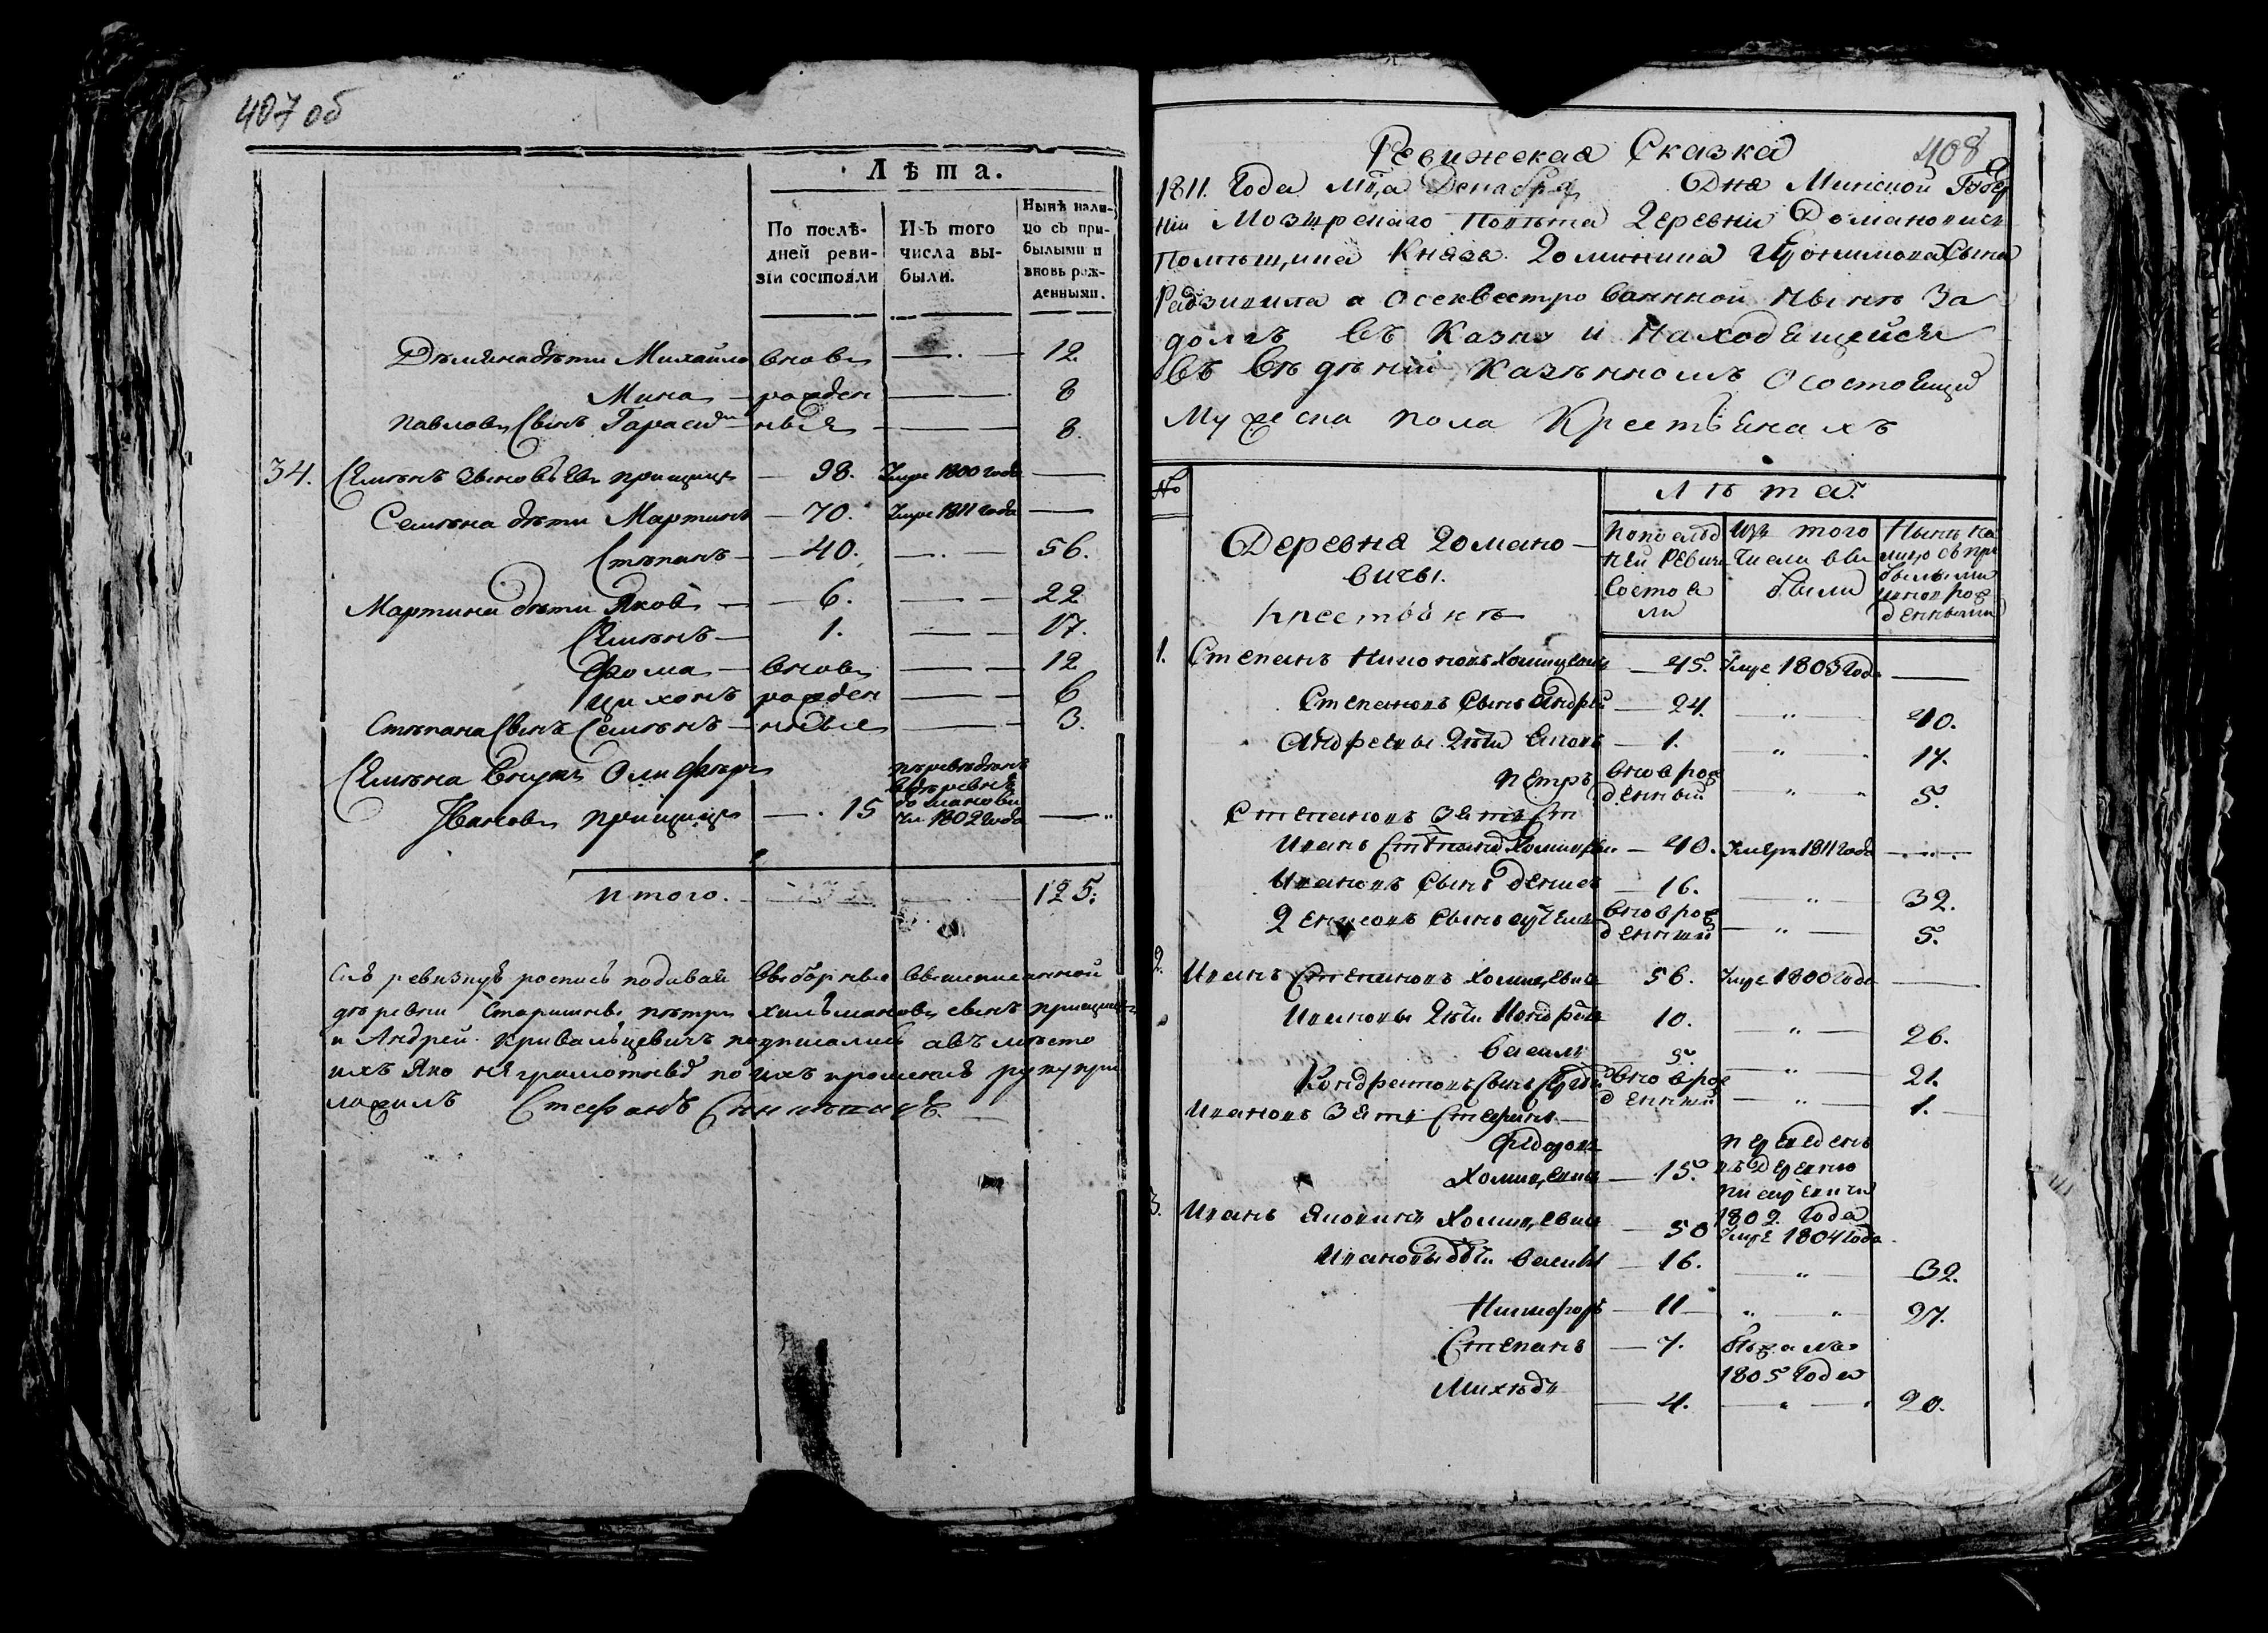 407 об
Лѣта.
По послѣ-
дней реви-
зіи состояли
Изъ того
числа вы-
были.
Нынѣ нали-
цо съ при-
былыми и
вновь рож-
денными.
Дѣмяна дѣти Михайло вновь 12.
Мина рожден 8
Павловъ Сынъ Гарасим ныя 8.
34. Сѣмѣнъ прищицъ 98. Умре 1800 года
Семѣна дѣти Мартинъ 70. Умре 1811 года
Стѣпанъ 40. 56.
Мартина дѣти Яковъ 6. 22
Сѣмѣнъ 1. 17.
Фома вновь 12
Цихонъ рожден 6
Стѣпана Сынъ Семѣнъ ные 3.
Сѣмѣна Внукъ
Ивановъ прищицъ 15
пѣревѣдѣнъ
вдѣревнѣ
доманови
чи 1802 года
Итого. 125.
Сію ревизную роспись подавали Выборные Вышеписанной
дѣревни Старшины пѣтръ сынъ прищицъ
и Андрей Кривальцевичъ подписались авъмѣсто
ихъ яко неграмотныхъ по ихъ прошенію руку при
ложилъ Стефанъ
408
Ревижская Сказка
1811. Года мца Декабря Дня Минской Губер
ніи Мозырскаго Повѣта Деревни Домановичъ
Помѣщика Князя Доминика Иронимова Сына
Радзивила а осеквестрованной нынѣ За
долгъ въ Казну и находящейся
въ вѣденіи Казенномъ о состоящи
Мужеска пола Крестьянахъ
№
Деревня Домано-
вичы.
Крестьянъ
Лѣта.
Попослѣд
ней Ревизи
Состоя
ли
Изъ того
Числа вы
были
Нынѣ на
лицо съпри
былыми
ивнов рож
денными
1. Степанъ Хомицевичъ 45. Умре 1803 Года
Степановъ Сынъ Андрей 24. 40.
Андреевы Дѣти 1. 17.
Петръ вновь рожденный 5.
Степановъ Зять
Иванъ 40. Умеръ 1811 года
Ивановъ Сынъ Денисъ 16. 32.
Денисовъ Сынъ вновь рожденный 5.
2. Иванъ Степановъ Хомицевичъ 56. Умре 1800 года
Ивановы Дѣти Кондратъ 10. 26.
Василь 5. 21.
Кондратовъ Сынъ вновь рожденный 1.
Ивановъ Зять Стефанъ
Федоровъ
Хомицевичъ 15.
Переведенъ
въ Деревню
1802. Года
3. Иванъ Хомицевичъ 50 Умре 1804 Года
Ивановы Дѣти Василь 16. 32.
Никифоръ 11 27.
Степанъ 7. Бѣжалъ
1805 Года
4. 20.